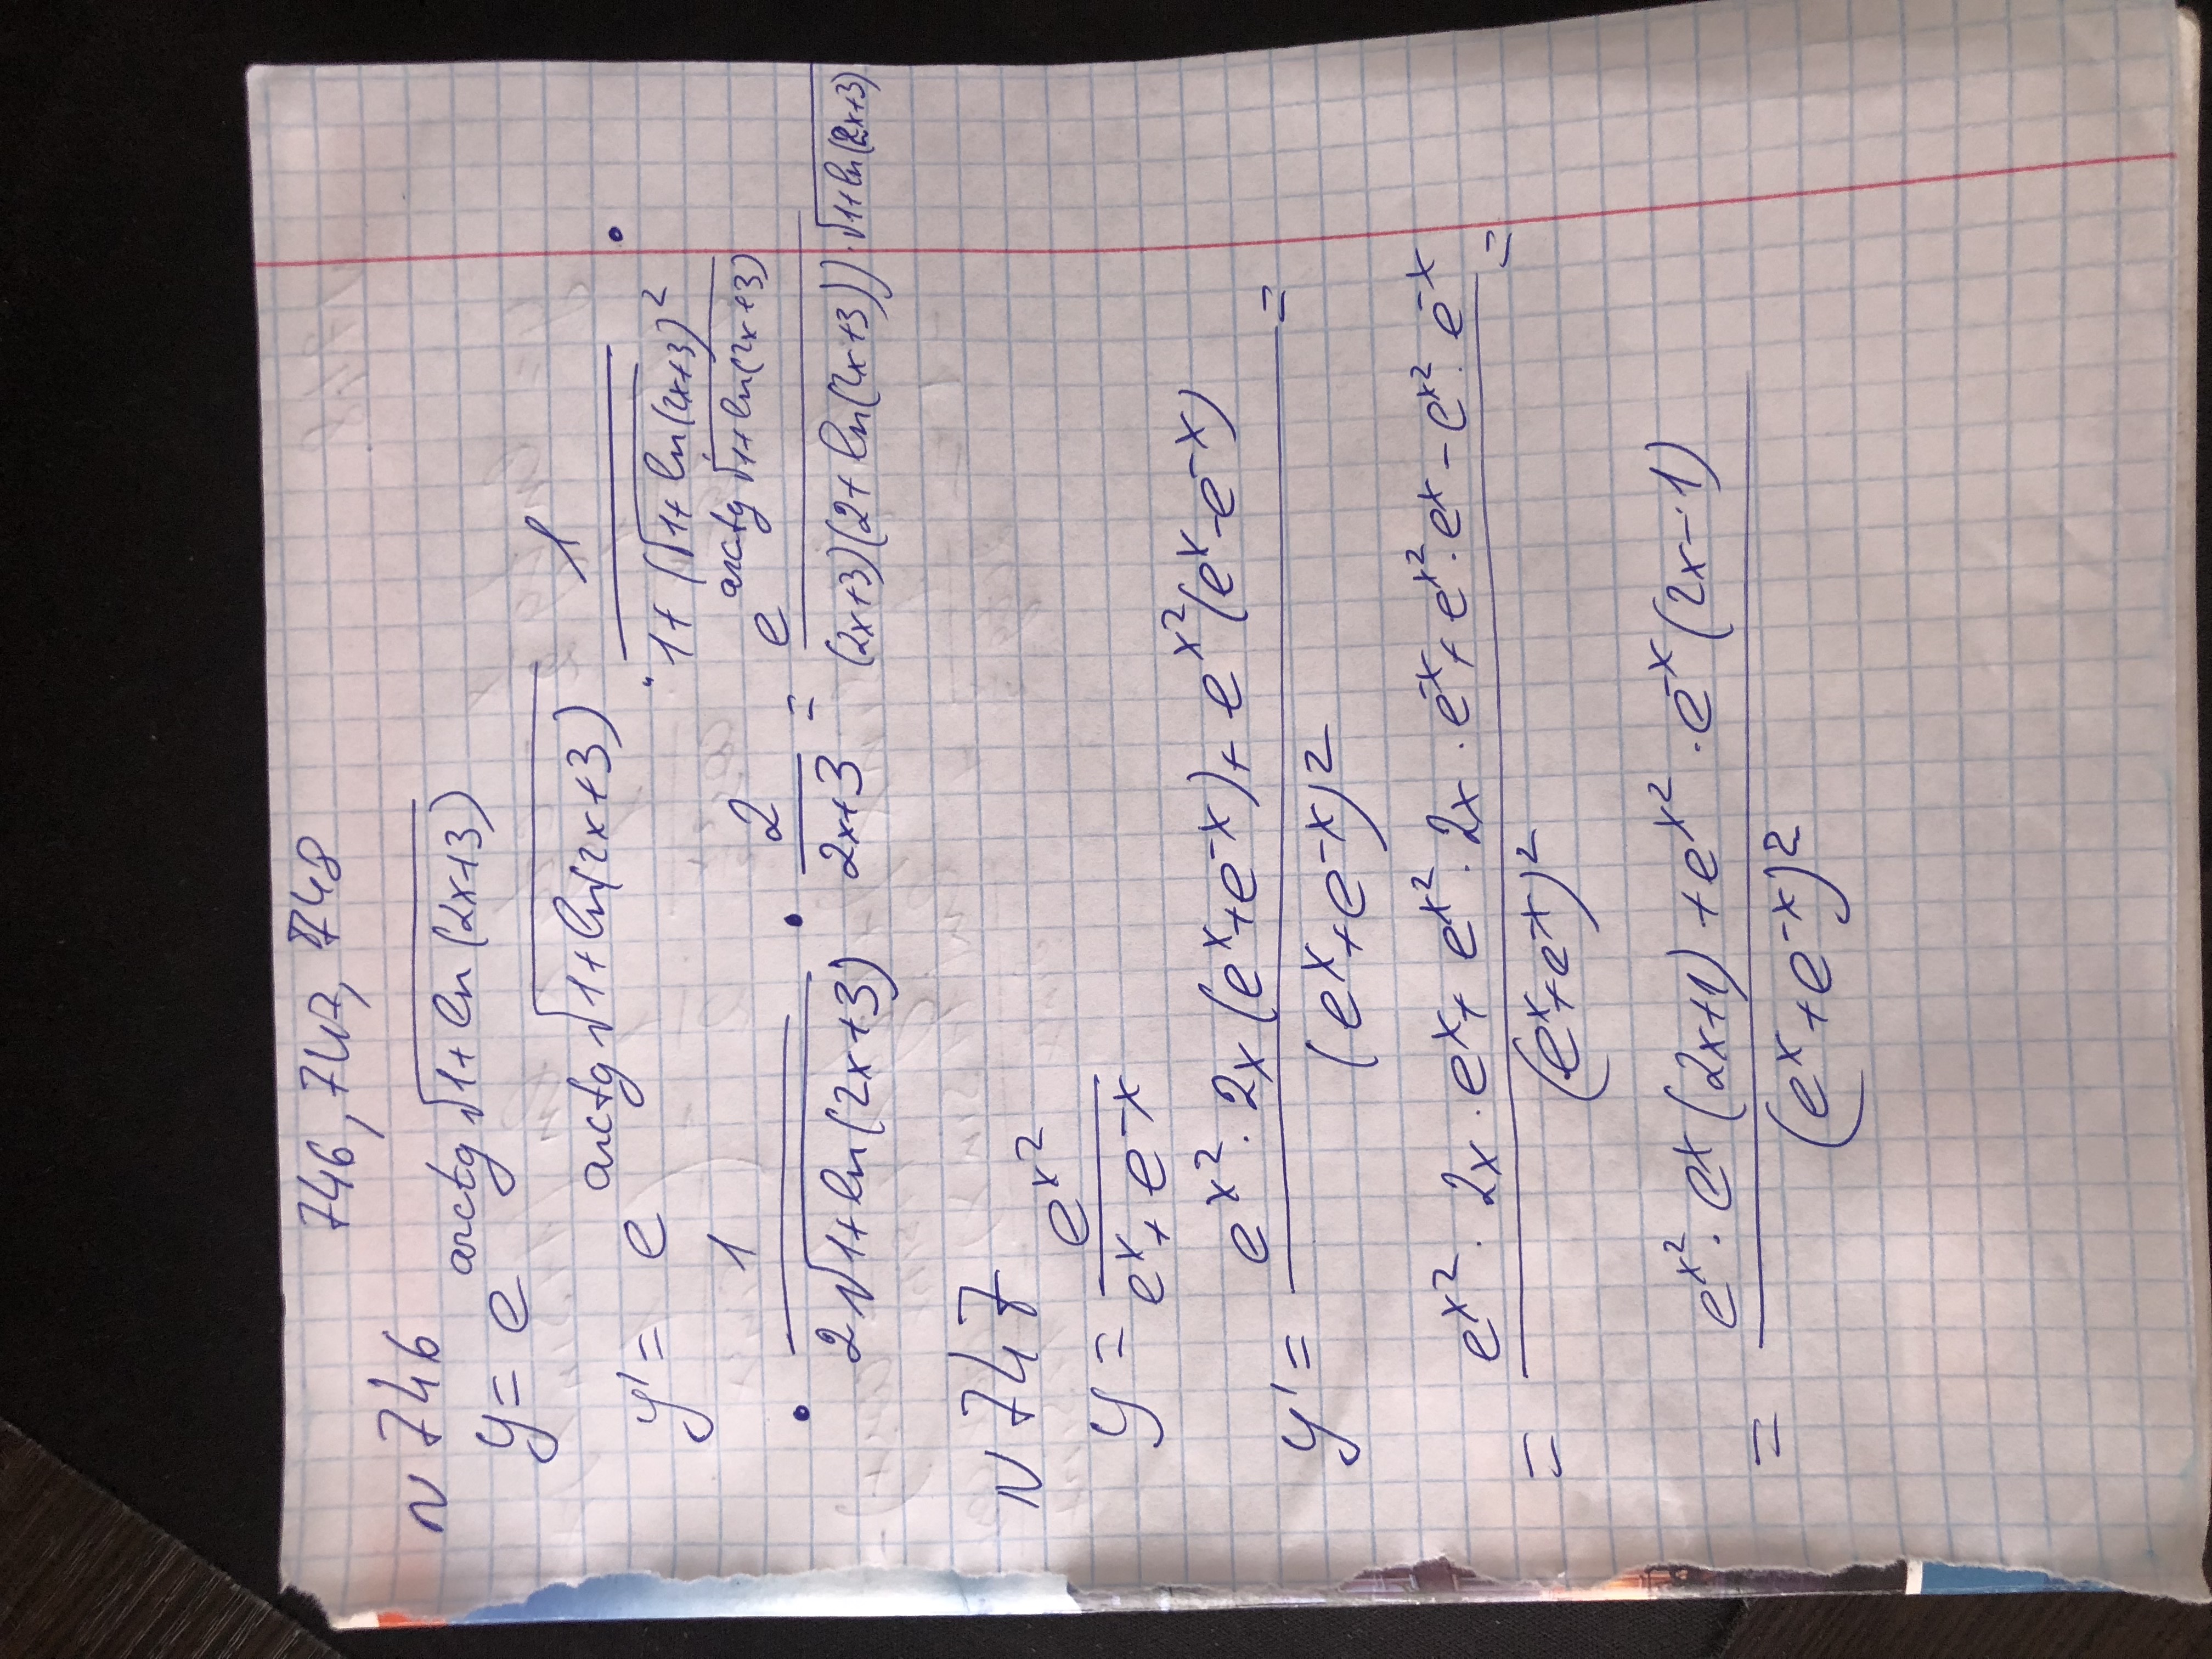 746, 747, 748
N 746
y = e^{arctg √(1+ln(2x+3))}
y' = e^{arctg √(1+ln(2x+3))} · 1/(1+(√(1+ln(2x+3))^2) ·
· 1/(2√(1+ln(2x+3))) · 2/(2x+3) = e^{arctg √(1+ln(2x+3))}/((2x+3)(2+ln(2x+3))·√(1+ln(2x+3)))
N 747
y = e^{x^2}/(e^x + e^{-x})
y' = (e^{x^2} · 2x (e^x + e^{-x}) + e^{x^2}(e^x - e^{-x}))/(e^x + e^{-x})^2 =
= (e^{x^2} · 2x · e^x + e^{x^2} · 2x · e^{-x} + e^{x^2} · e^x - e^{x^2} · e^{-x})/(e^x + e^{-x})^2 =
= (e^{x^2} · e^x (2x+1) + e^{x^2} · e^{-x} (2x-1))/(e^x + e^{-x})^2